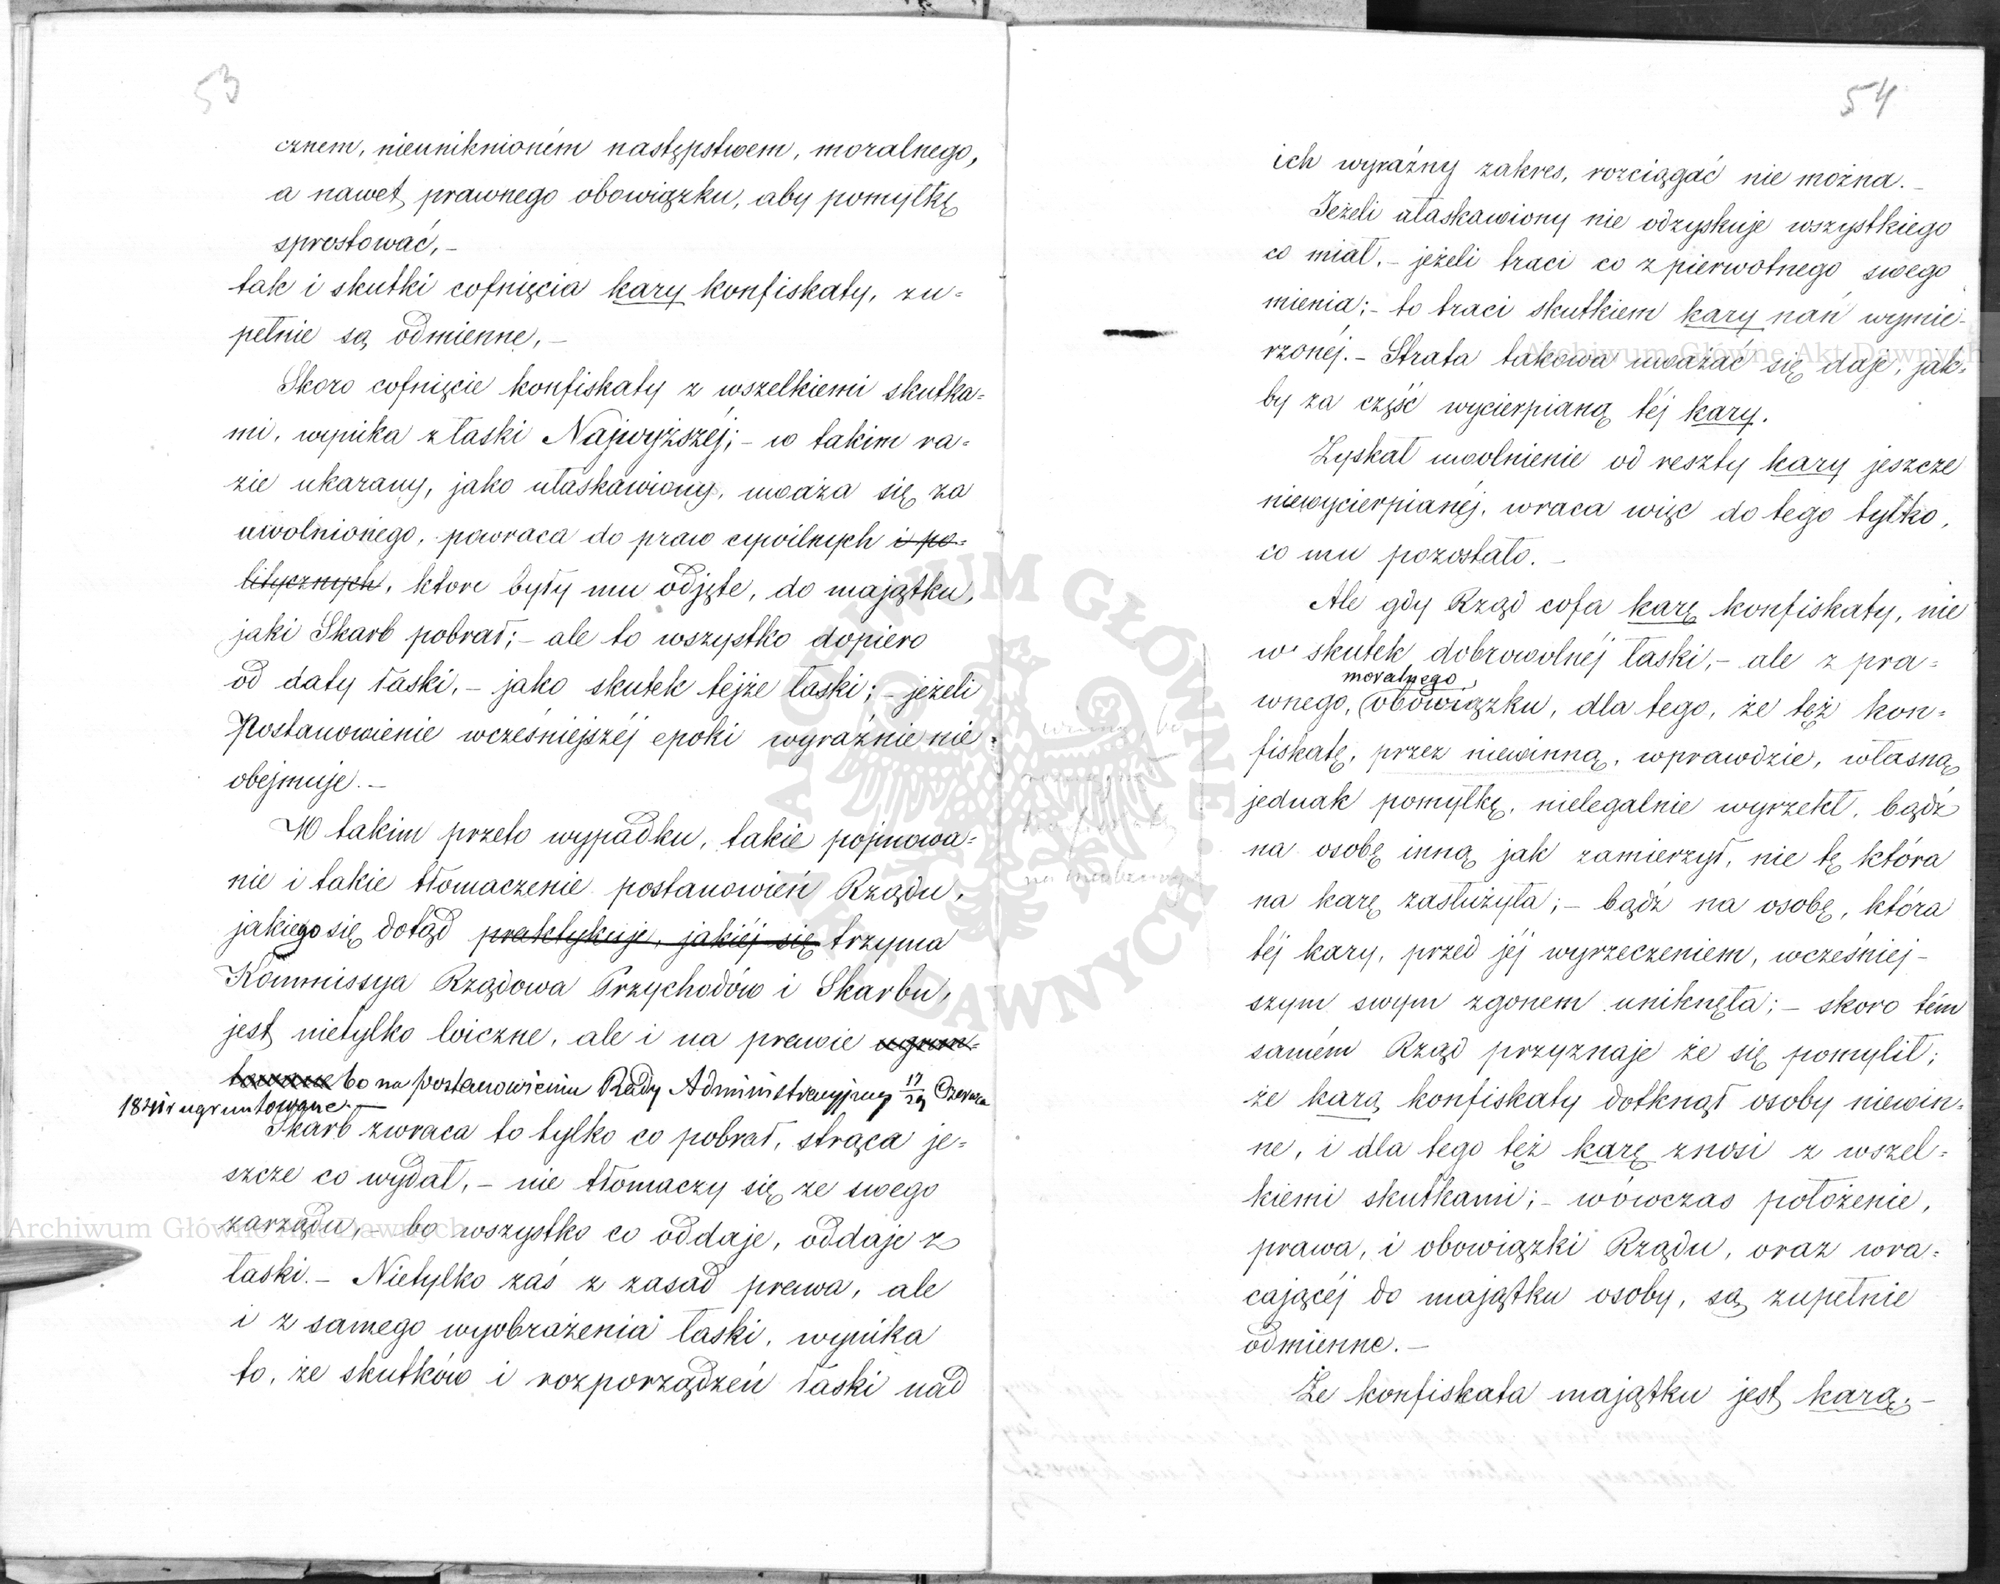 53
cznem, nieuniknioném następstwem, moralnego,
a nawet prawnego obowiązku, aby pomyłkę
sprostować, –
tak i skutki cofnięcia kary konfiskaty, zu=
pełnie są odmienne, –
Skoro cofnięcie konfiskaty z wszelkiemi skutka=
mi, wynika z łaski Najwyższéj; – w takim ra=
zie ukarany, jako ułaskawiony, uważa się za
uwolnionego, powraca do praw cywilnych i po=
litycznych, które były mu odjęte, do majątku,
jaki Skarb pobrał; – ale to wszystko dopiero
od daty łaski, – jako skutek tejże łaski; – jeżeli
Postanowienie wcześniejszéj epoki wyraźnie nie
obejmuje. –
W takim przeto wypadku, takie pojmowa=
nie i takie tłomaczenie postanowień Rządu,
jakiego się dotąd praktykuje, jakiéj się trzyma
Kommissya Rządowa Przychodów i Skarbu,
jest nietylko loiczne, ale i na prawie ugrun=
towane bo na postanowieniu Rady Administracyjney 17/29 Czerwca
1841 r ugruntowane. –
Skarb zwraca to tylko co pobrał, strąca je=
szcze co wydał, – nie tłomaczy się ze swego
zarządu, – bo wszystko co oddaje, oddaje z
łaski. – Nietylko zaś z zasad prawa, ale
i z samego wyobrażenia łaski, wynika
to, że skutków i rozporządzeń łaski nad
54
ich wyraźny zakres, rozciągać nie można. –
Jeżeli ułaskawiony nie odzyskuje wszystkiego
co miał, – jeżeli traci co z pierwotnego swego
mienia; – to traci skutkiem kary nań wymie=
rzonéj. – Strata takowa uważać się daje, jak=
by za część wycierpianą téj kary.
Zyskał uwolnienie od reszty kary jeszcze
niewycierpianéj, wraca więc do tego tylko,
co mu pozostało. –
Ale gdy Rząd cofa karę konfiskaty, nie
w skutek dobrowolnéj łaski, – ale z pra=
moralnego,
wnego, obowiązku, dla tego, że też kon=
fiskatę, przez niewinną, wprawdzie, własną
jednak pomyłkę, nielegalnie wyrzekł, bądź
na osobę inną jak zamierzył, nie tę która
na karę zasłużyła; – bądź na osobę, która
téj kary, przed jéj wyrzeczeniem, wcześniej–
szym swym zgonem uniknęła; – skoro tém
samém Rząd przyznaje że się pomylił;
że karą konfiskaty dotknął osoby niewin=
ne, i dla tego też karę znosi z wszel=
kiemi skutkami; – wówczas położenie,
prawa, i obowiązki Rządu, oraz wra=
cającéj do majątku osoby, są zupełnie
odmienne. –
Że konfiskata majątku jest karą, –
ARCHIWUM GŁÓWNE AKT DAWNYCH
Archiwum Główne Akt Dawnych
Archiwum Główne Akt Dawnych